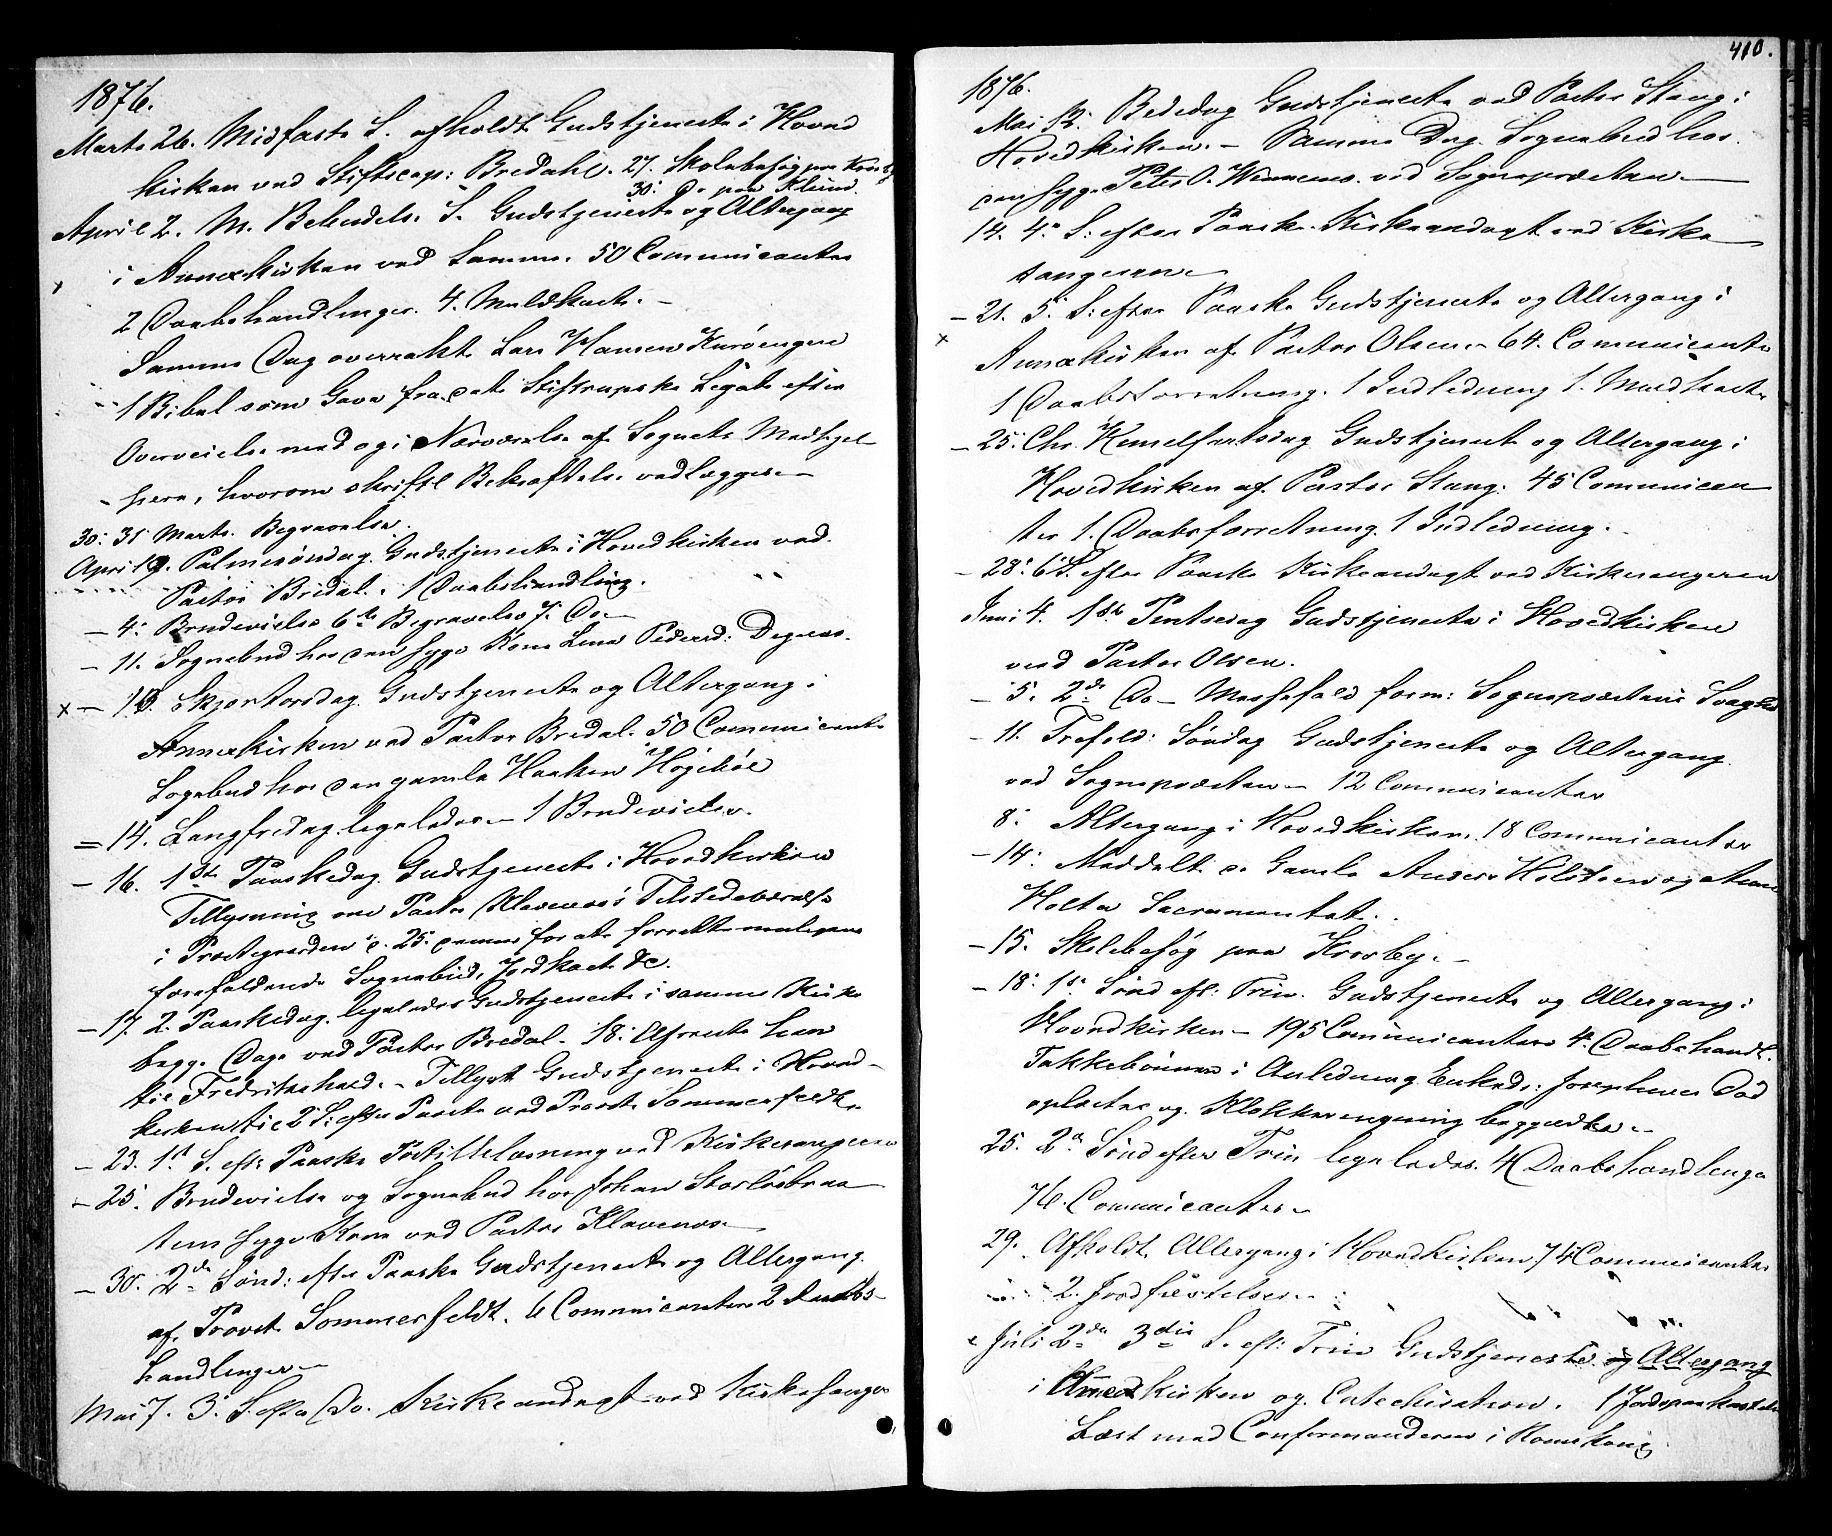 1876.
Marts 26. Midfaste S. afholdt Gudstjeneste i Hoved
kirken ved Stiftscap: Bredahl. 27. Skolebesøg paa Krosby
30. Do paa Klund.
April 2. M. Bebudels. S. Gudstjeneste og Altergang
i Annexkirken ved Samme. 50 Communicanter
2 Daabshandlinger. 4. Muldkast. –
Samme Dag overrakt Lars Hansen Kurøengen
1 Bibel som Gave fra det Stiftrupske Legat efter
Overveielse med og i Nærværelse af Sognets Medhjel
pere, hvorom skriftl Bekræftelse vedlægges. –
30. 31 Marts. Begravelse.
April 9. Palmesøndag. Gudstjeneste i Hovedkirken ved
Pastor Bredal. 1 Daabshandling.
– 4. Brudevielse 6te Begravelse 7. Do –
– 11. Sognebud hos den syge Kone Lena Pedersd: Degnes.
x – 13. Skjærtorsdag. Gudstjeneste og Altergang i
Annexkirken ved Pastor Bredal. 50 Communicanter
Sognebud hos den gamle Haaken Høiebøl
= 14. Langfredag. ligeledes. – 1 Brudevielse.
– 16. 1ste Paaskedag. Gudstjeneste i Hovedkirken
Tillysning om Pastor Klavenes's Tilstedeværelse
i Præstegaarden d. 25. dennes for at forrette muligens
forefaldende Sognebud, Jordkast &c.
– 17. 2. Paaskedag. ligeledes Gudstjeneste i samme Kirke
begge Dage ved Pastor Bredal. 18. Afreiste han
til Fredrikshald. – Tillyst Gudstjeneste i Hoved-
kirken til 2 S: efter Paaske ved Provst Sommerfeldt.
– 23. 1st S. eft: Paaske Postillelæsning ved Kirkesangeren
– 25. Brudevielse og Sognebud hos Johan Storløsbraa
tens syge Kone ved Pastor Klavenes. –
– 30. 2den Sønd: efter Paaske Gudstjeneste og Altergang
af Provst Sommerfeldt. 6 Communicanter 2 Daabs-
handlinger –
Mai 7. 3. S. efter Do. Kirkeandagt ved Kirkesanger
410.
1876.
Mai 12. Bededag Gudstjeneste ved Pastor Stang i
Hovedkirken. – Samme Dag. Sognebud hos
den syge Peter O. ved Sognepræsten. –
14. 4de S: efter Paaske. Kirkeandagt ved Kirke
sangeren –
– 21. 5. S: efter Paaske Gudstjeneste og Altergang i
x
Annexkirken af Pastor Olsen. – 64. Communicanter
1 Daabsforretning. 1 Indledning 1. Muldkast
– 25. Chr. Himelfartsdag Gudstjeneste og Altergang i
Hovedkirken af Pastor Stang. 45 Comunican
ter 1. Daabsforretning. 1 Indledning.
– 28. 6 S. efter Paaske Kirkeandagt ved Kirkesangeren
Juni 4. 1ste Pintsedag Gudstjeneste i Hovedkirken
ved Pastor Olsen.
– 5. 2de Do – Messefald form: Sognepræstens Svaghed
– 11. Trefold: Søndag Gudstjeneste og Altergang
ved Sognepræsten – 12 Communicanter
8. Altergang i Hovedkirken. 18 Communicanter
– 14. Meddelt d. Gamle Anders Holsteen og Anne
Holter Sacramentet.
– 15. Skolebesøg paa Krosby. –
– 18. 1ste Sønd eft: Trin. Gudstjeneste og Altergang i
Hovedkirken – 195 Communicanter 4. Daabshandl.
Takkebønner i Anledning Enkeds: Josephines Død
oplæstes og Klokkeringning begyndte. –
25. 2den Sønd efter Trin ligeledes. 4 Daabshandlinge
76. Communicanter –
29. Afholdt. Altergang i Hovedkirken. 74 Communicanter
2. Jordfæstelser. –
x Juli 2de 3die S. eft: Trin Gudstjeneste og Altergang
i Annexkirken og Catechisation. 1 Jordpaakastelse
Læst med Conformanderne i Romskoug